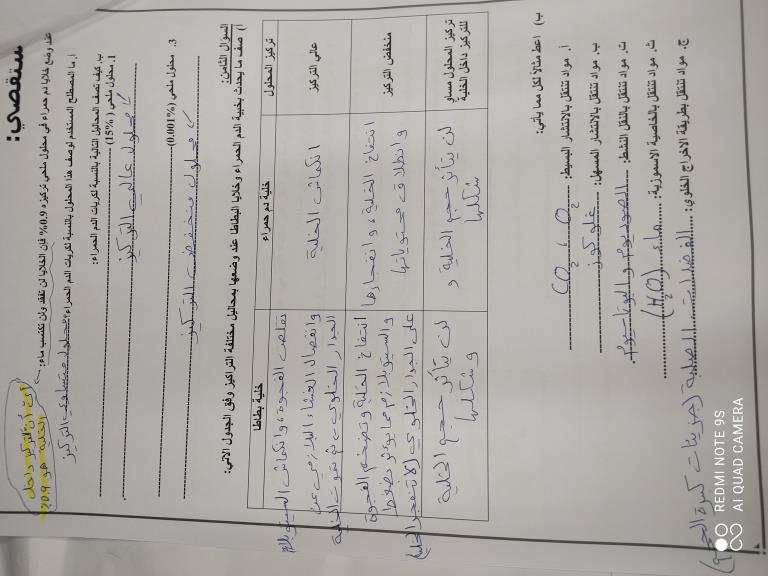 ستقصي:
عند وضع خلايا دم حمراء في محلول ملحي تركيزه 0.9% فإن الخلايا لن تفقد ولن تكتسب ماء:
أي أن التركيز داخل
الخلية هو 0.9%
أ. ما المصطلح المستخدم لوصف هذا المحلول بالنسبة لكريات الدم الحمراء؟ محلول متساوي التركيز
ب. كيف تصف المحاليل التالية بالنسبة لكريات الدم الحمراء:
1. محلول ملحي (15%)
محلول عالي التركيز
3. محلول ملحي (0.001%)
محلول منخفض التركيز
السؤال الثامن:
أ) صف ما يحدث بخلية الدم الحمراء وخلايا البطاطا عند وضعها بمحاليل مختلفة التراكيز وفق الجدول الآتي:
تركيز المحلول خلية دم حمراء خلية بطاطا
عالي التركيز انكماش الخلية تقلص الفجوة، وانكماش السيتوبلازم
وانفصال الغشاء البلازمي عن
الجدار الخلوي، ثم تموت الخلية
منخفض التركيز انتفاخ الخلية، وانفجارها
وانطلاق محتوياتها
انتفاخ الخلية وتضخم الفجوة
والسيتوبلازم مما يولد ضغط
على الجدار الخلوي (لا تنفجر الخلية)
تركيز المحلول مساو
للتركيز داخل الخلية
لن يتأثر حجم الخلية و
شكلها
لن يتأثر حجم الخلية
وشكلها
ب) اعط مثالاً لكل مما يأتي:
أ. مواد تنتقل بالانتشار البسيط: O2 ، CO2
ب. مواد تنتقل بالانتشار المسهل: غلوكوز
ت. مواد تنتقل بالنقل النشط: الصوديوم والبوتاسيوم
ث. مواد تنتقل بالخاصية الاسموزية: ماء (H2O)
ج. مواد تنتقل بطريقة الاخراج الخلوي: الفضلات الصلبة (جزيئات كبيرة الحجم)
REDMI NOTE 9S
AI QUAD CAMERA